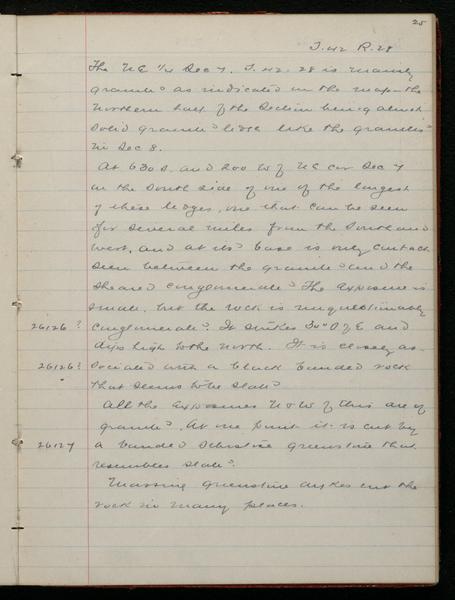 25
T. 42 R. 28
The NE 1/4 Sec 7, T. 42. 28 is mainly
granite as indicated on the map - the
Northern half of the Section being almost
solid granite like the granites
in Sec 8.
At 630 S. and 200 W of NE cor Sec 7
on the South side of one of the largest
of these ledges, one that can be seen
for several miles from the South and
West, and at its base is only contact
seen between the granite and the
sheared conglomerate. The exposure is
small, but the rock is unquestionably
26126? conglomerate. It strikes of E and
dips high to the north. It is closely as-
26126? sociated with a black banded rock
that seems to be slate
All the exposures N & W of this are of
granite. At one point it is cut by
26127 a banded Schistose greenstone that
resembles slate.
Massive greenstone dykes cut the
rock in many places.